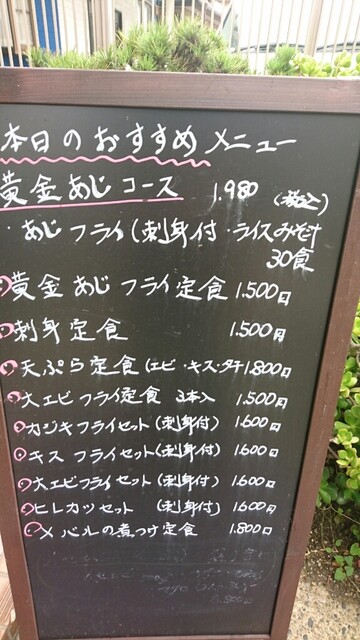 本日のおすすめメニュー
黄金あじコース 1.980 (税込)
・あじフライ(刺身付・ライスみそ汁
30食
黄金あじフライ定食 1.500円
刺身定食 1.500円
天ぷら定食(エビ・キス・タチ 1.800円
大エビフライ定食 3本入 1.500円
カジキフライセット(刺身付) 1.600円
キスフライセット(刺身付) 1.600円
大エビフライセット(刺身付) 1.600円
ヒレカツセット (刺身付) 1.600円
メバルの煮つけ定食 1.800円